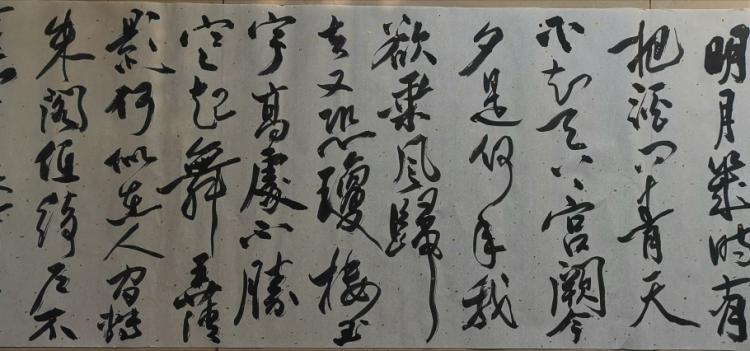 明月幾時有
把酒問青天
不知天上宮闕今
夕是何年我
欲乘風歸
去又恐瓊樓玉
宇高處不勝
寒起舞弄清
影何似在人間轉
朱閣低綺戶不